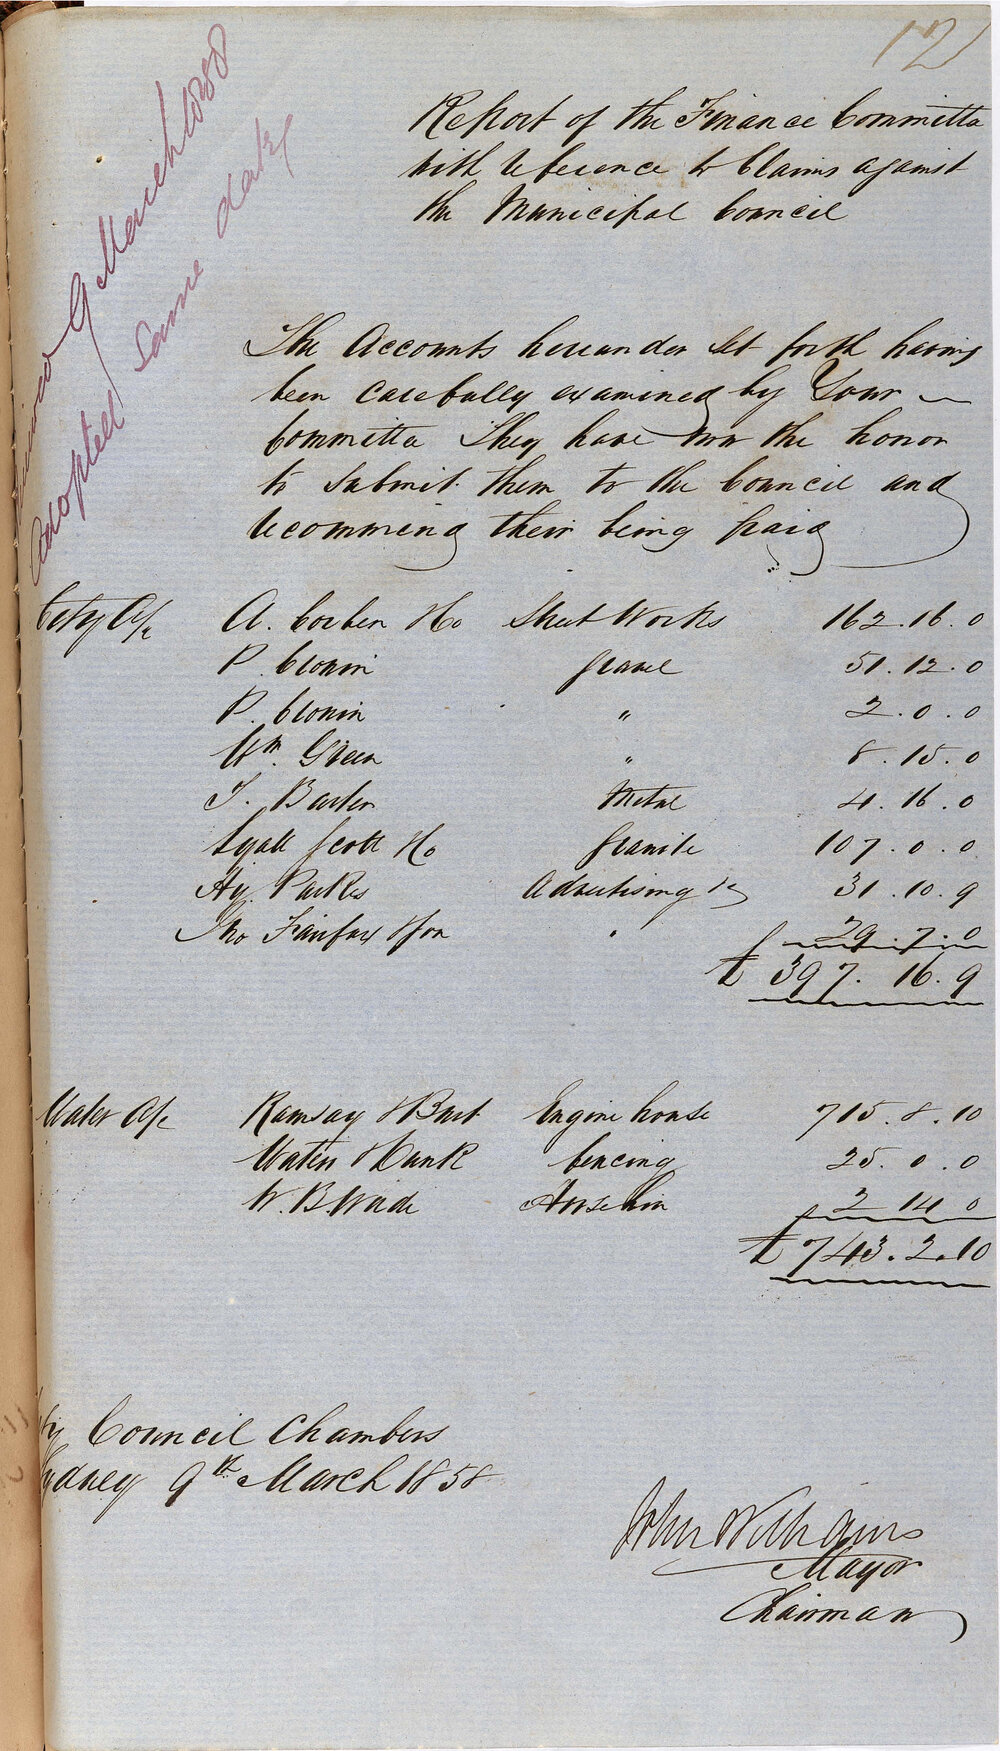 12
Report of the Finance Committee
with reference to Claims against
the Municipal Council
9 March 1858
adopted same date
The Accounts hereunder set forth having
been carefully examined by Your
Committee They have now the honor
to submit them to the Council and
recommend their being paid
City A/c A. Corben & Co Street Works 162.16.0
P. Cronin Gravel 51.12.0
P. Cronin " 2.0.0
Wm. Green " 8.15.0
T. Metal 4.16.0
Lyall Scott & Co Granite 107.0.0
Hy Parkes Advertising 31.10.9
Jno Fairfax & Son " 29.7.0
£397.16.9
Water A/c Ramsay & Engine house 715.8.10
Waters & fencing 25.0.0
W. B. Wade Horse hire 2 14 0
£743.2.10
City Council Chambers
Sydney 9th March 1858
John Williams
Mayor
Chairman